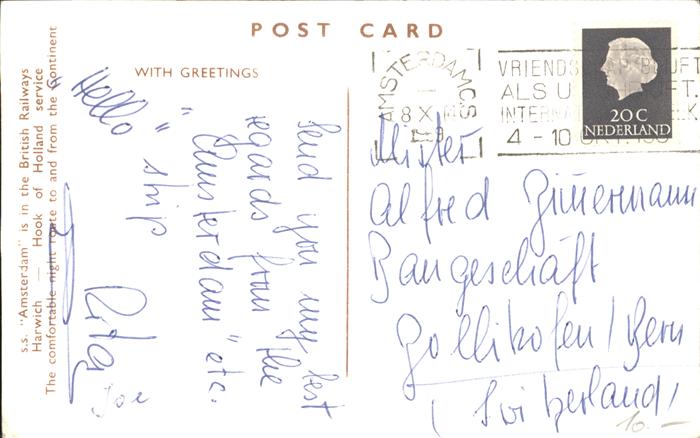 POST CARD
WITH GREETINGS
s.s. "Amsterdam" is in the British Railways
Harwich — Hook of Holland service
The comfortable night route to and from the Continent
"Hello"
Send you my best
regards from the
"Amsterdam" etc.
ship
Rita
Joe
AMSTERDAM CS
8 X
VRIENDS
ALS U
INTERNAT
4 - 10 OKT. 195
20 C
NEDERLAND
Mister
Alfred Zimmermann
Baugeschäft
Zollikofen / Bern
( Switzerland )
10.-